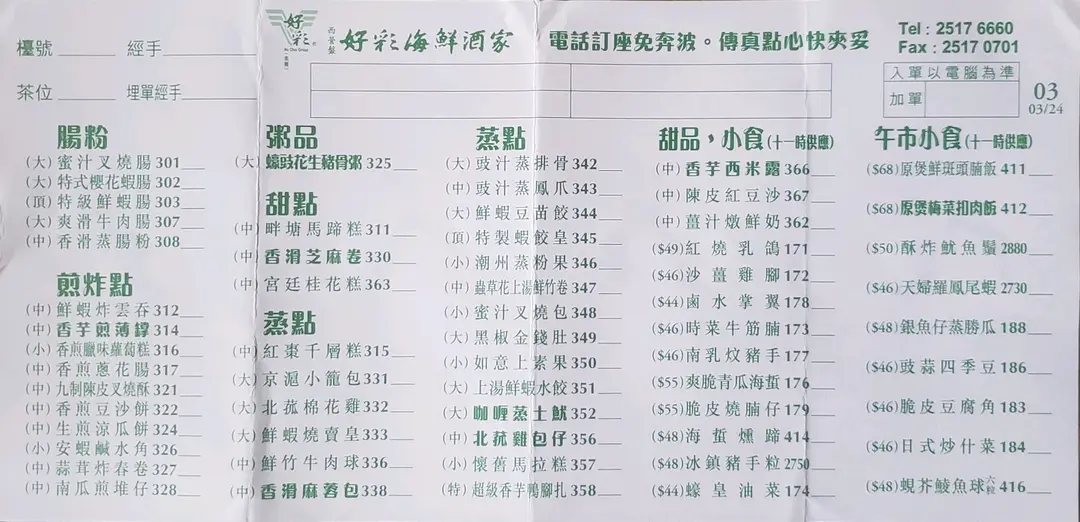 檯號 經手
茶位 埋單經手
好彩
西營盤
好彩海鮮酒家
電話訂座免奔波。傳真點心快夾妥
Tel : 2517 6660
Fax : 2517 0701
入單以電腦為準
加單
03
03/24
腸粉
(大) 蜜汁叉燒腸 301
(大) 特式櫻花蝦腸 302
(頂) 特級鮮蝦腸 303
(大) 爽滑牛肉腸 307
(中) 香滑蒸腸粉 308
煎炸點
(中) 鮮蝦炸雲吞 312
(中) 香芋煎薄罉 314
(小) 香煎臘味蘿蔔糕 316
(中) 香煎蔥花腸 317
(中) 九制陳皮叉燒酥 321
(中) 香煎豆沙餅 322
(中) 生煎涼瓜餅 324
(小) 安蝦鹹水角 326
(中) 蒜茸炸春卷 327
(中) 南瓜煎堆仔 328
粥品
(大) 蠔豉花生豬骨粥 325
甜點
(中) 畔塘馬蹄糕 311
(中) 香滑芝麻卷 330
(中) 宮廷桂花糕 363
蒸點
(中) 紅棗千層糕 315
(大) 京滬小籠包 331
(大) 北菰棉花雞 332
(大) 鮮蝦燒賣皇 333
(中) 鮮竹牛肉球 336
(中) 香滑麻蓉包 338
蒸點
(大) 豉汁蒸排骨 342
(中) 豉汁蒸鳳爪 343
(大) 鮮蝦豆苗餃 344
(頂) 特製蝦餃皇 345
(小) 潮州蒸粉果 346
(中) 蟲草花上湯鮮竹卷 347
(小) 蜜汁叉燒包 348
(大) 黑椒金錢肚 349
(小) 如意上素果 350
(大) 上湯鮮蝦水餃 351
(大) 咖喱蒸土魷 352
(中) 北菰雞包仔 356
(小) 懷舊馬拉糕 357
(特) 超級香芋鴨腳扎 358
甜品，小食(十一時供應)
(中) 香芋西米露 366
(中) 陳皮紅豆沙 367
(中) 薑汁燉鮮奶 362
($49) 紅燒乳鴿 171
($46) 沙薑雞腳 172
($44) 鹵水掌翼 178
($46) 時菜牛筋腩 173
($46) 南乳炆豬手 177
($55) 爽脆青瓜海蜇 176
($55) 脆皮燒腩仔 179
($48) 海蜇燻蹄 414
($48) 冰鎮豬手粒 2750
($44) 蠔皇油菜 174
午市小食(十一時供應)
($68) 原煲鮮斑頭腩飯 411
($68) 原煲梅菜扣肉飯 412
($50) 酥炸魷魚鬚 2880
($46) 天婦羅鳳尾蝦 2730
($48) 銀魚仔蒸勝瓜 188
($46) 豉蒜四季豆 186
($46) 脆皮豆腐角 183
($46) 日式炒什菜 184
($48) 蜆芥鯪魚球六粒 416